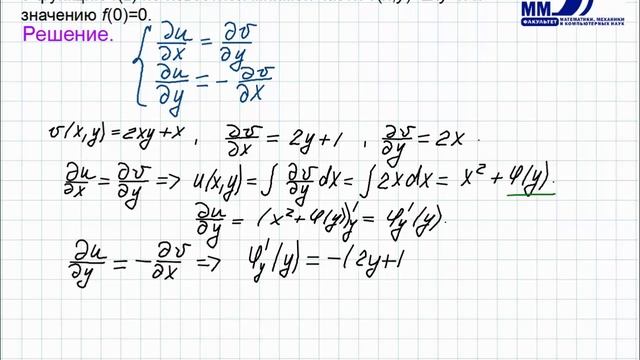 значению f(0)=0.
ММ
ФАКУЛЬТЕТ
МАТЕМАТИКИ, МЕХАНИКИ
И КОМПЬЮТЕРНЫХ НАУК
Решение.
∂u/∂x = ∂v/∂y
∂u/∂y = -∂v/∂x
v(x,y)=2xy+x, ∂v/∂x = 2y+1, ∂v/∂y = 2x.
∂u/∂x = ∂v/∂y => u(x,y) = ∫ ∂v/∂y dx = ∫ 2x dx = x² + φ(y).
∂u/∂y = (x² + φ(y))'y = φ'y(y).
∂u/∂y = -∂v/∂x => φ'y(y) = -(2y+1